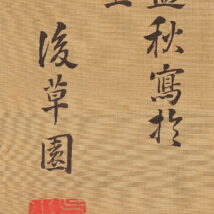 秋寫於
後草園